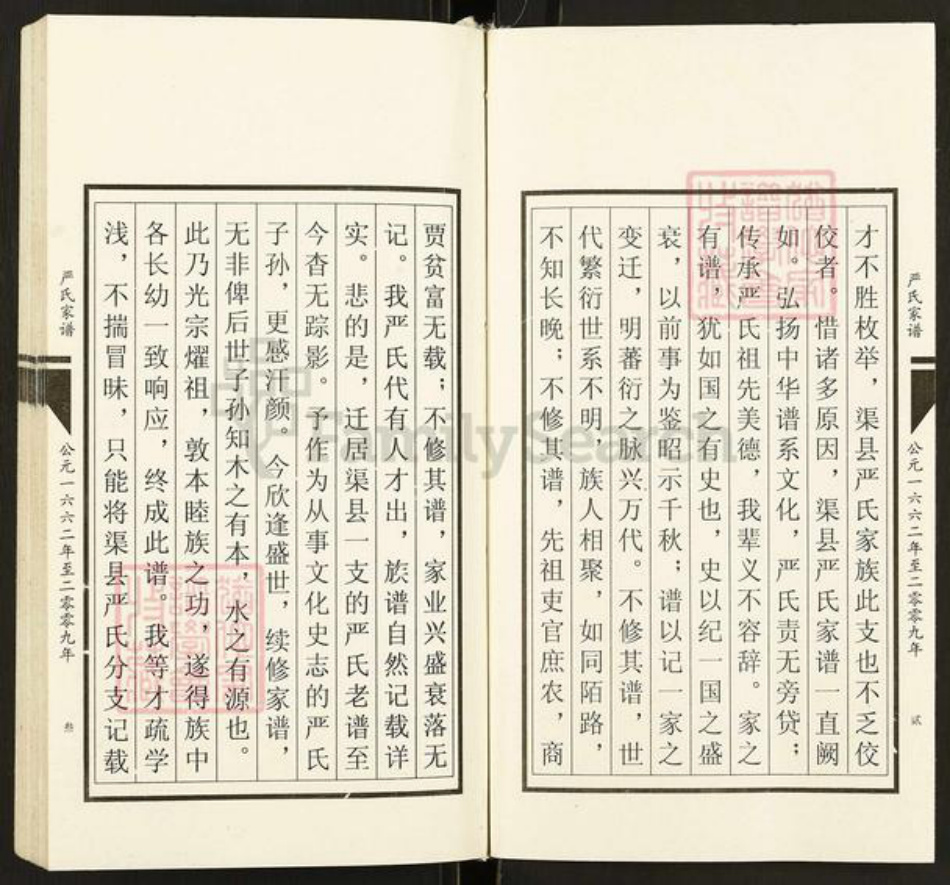 严氏家谱
公元一六六二年至二零零九年
贰
才不胜枚举，渠县严氏家族此支也不乏佼
佼者。惜诸多原因，渠县严氏家谱一直阙
如。弘扬中华谱系文化，严氏责无旁贷；
传承严氏祖先美德，我辈义不容辞。家之
有谱，犹如国之有史也，史以纪一国之盛
衰，以前事为鉴昭示千秋；谱以记一家之
变迁，明蕃衍之脉兴万代。不修其谱，世
代繁衍世系不明，族人相聚，如同陌路，
不知长晚；不修其谱，先祖吏官庶农，商
贾贫富无载；不修其谱，家业兴盛衰落无
记。我严氏代有人才出，族谱自然记载详
实。悲的是，迁居渠县一支的严氏老谱至
今杳无踪影。予作为从事文化史志的严氏
子孙，更感汗颜。今欣逢盛世，续修家谱，
无非俾后世子孙知木之有本，水之有源也。
此乃光宗耀祖，敦本睦族之功，遂得族中
各长幼一致响应，终成此谱。我等才疏学
浅，不揣冒昧，只能将渠县严氏分支记载
严氏家谱
公元一六六二年至二零零九年
叁
FamilySearch